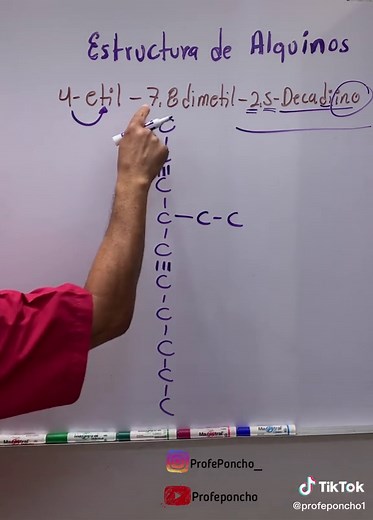 Estructura de Alquinos
4-etil-7,8dimetil-2,5-Decadiino
C
C
C
C-C-C
C
C
C
C
C
C
ProfePoncho_
Profeponcho
TikTok
@profeponcho1